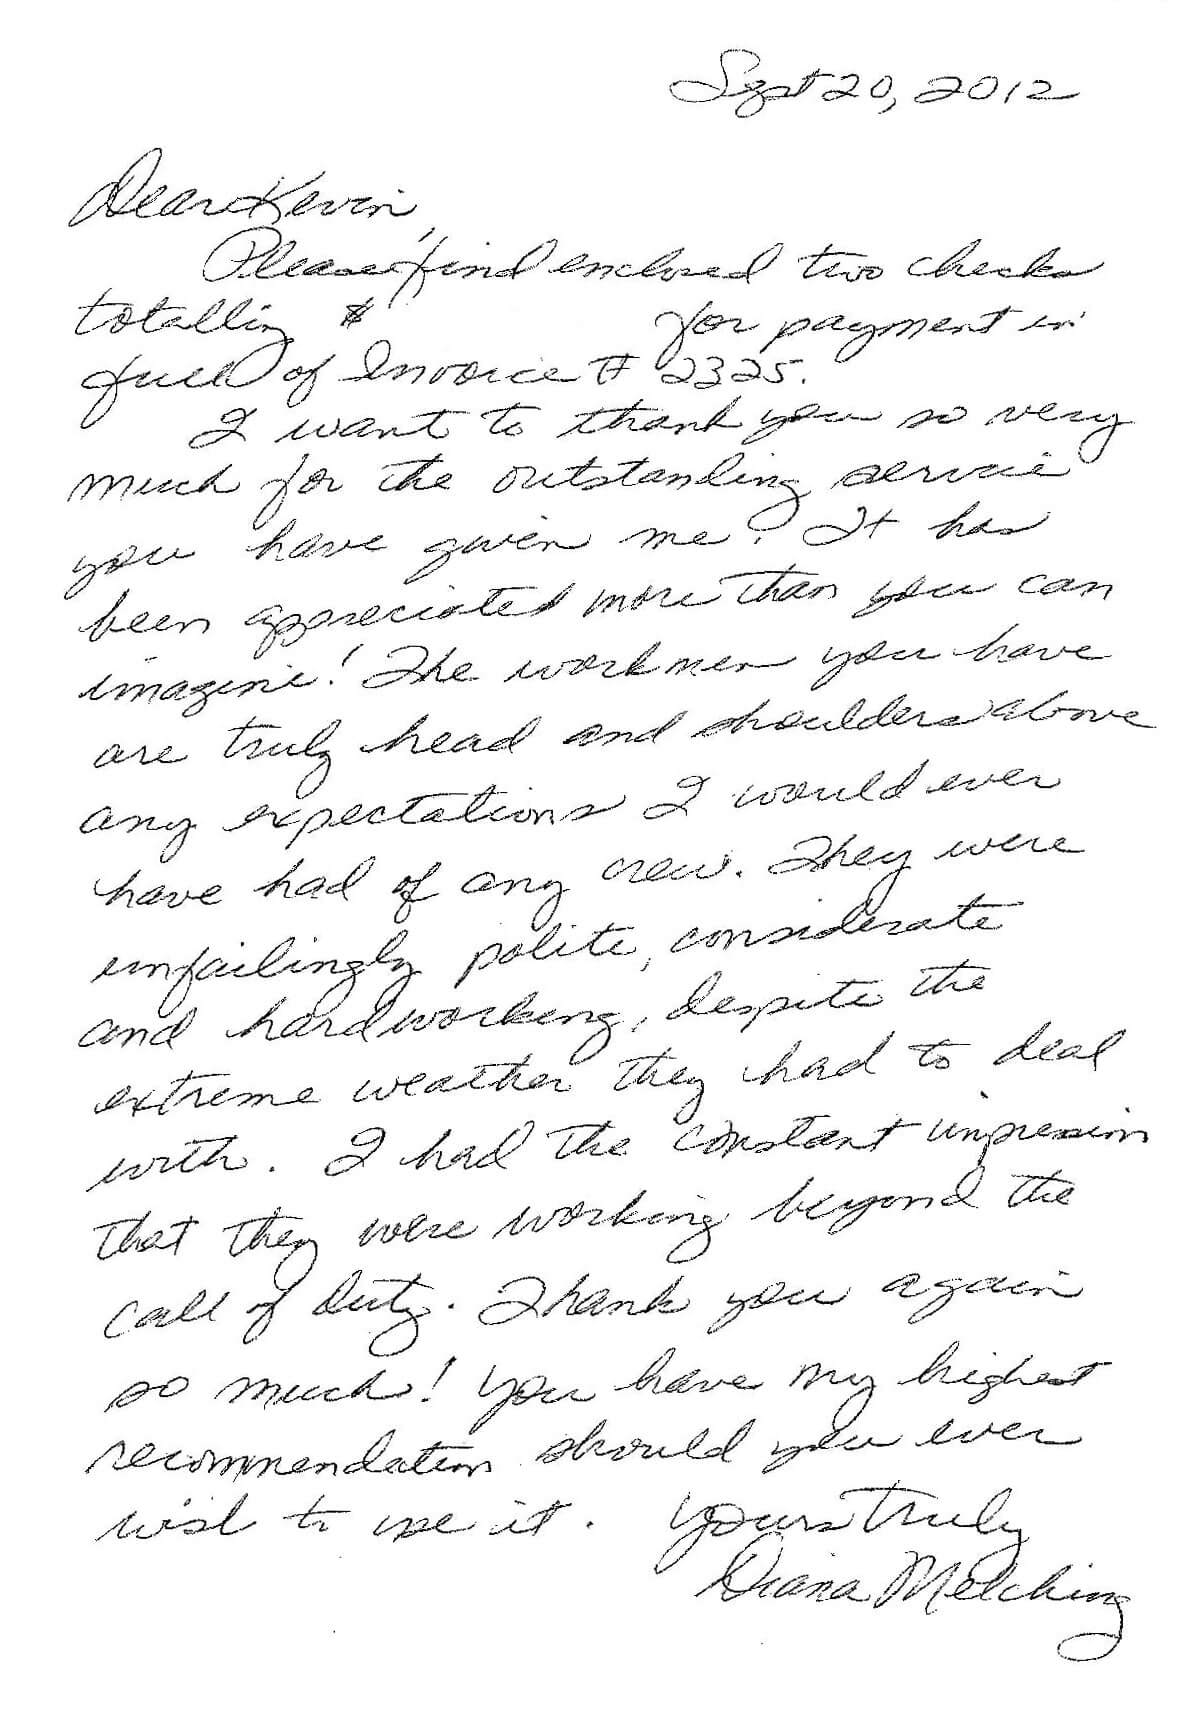 Sept 20, 2012
Dear Kevin,
Please find enclosed two checks
totalling $ for payment in
full of Invoice # 2325.
I want to thank you so very
much for the outstanding service
you have given me. It has
been appreciated more than you can
imagine! The workmen you have
are truly head and shoulders above
any expectations I would ever
have had of any crew. They were
unfailingly polite, considerate
and hardworking, despite the
extreme weather they had to deal
with. I had the constant impression
that they were working beyond the
call of duty. Thank you again
so much! You have my highest
recommendation should you ever
wish to use it. Yours Truly
Diana Melching